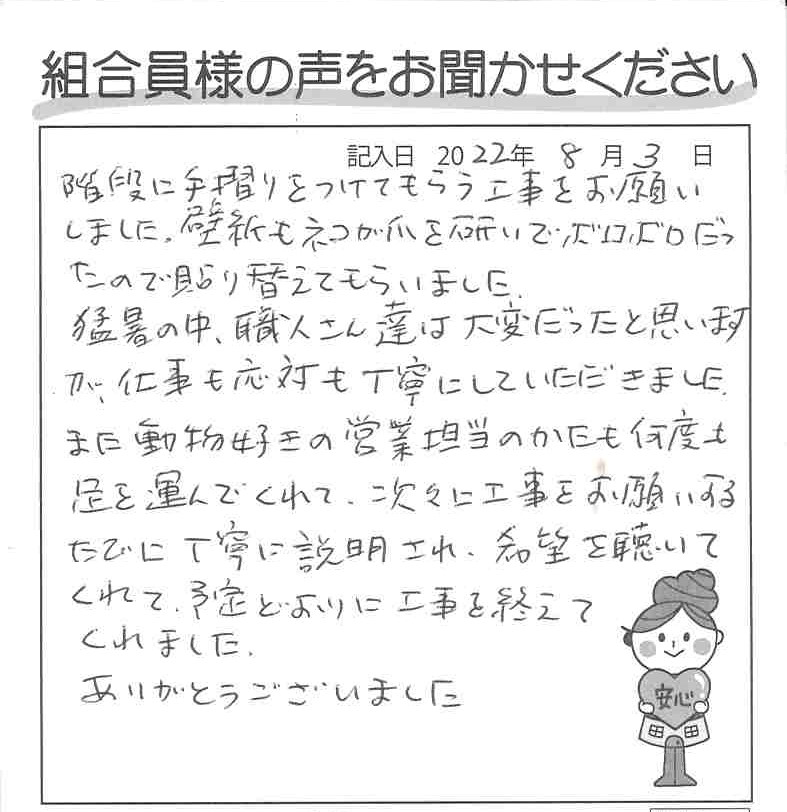 組合員様の声をお聞かせください
記入日 2022年 8月 3日
階段に手摺りをつけてもらう工事をお願い
しました。壁紙もネコが爪を研いで、ボロボロだっ
たので貼り替えてもらいました。
猛暑の中、職人さん達は大変だったと思います
が、仕事も応対も丁寧にしていただきました。
また動物好きの営業担当のかたも何度も
足を運んでくれて、次々に工事をお願いする
たびに丁寧に説明され、希望を聴いて
くれて、予定どおりに工事を終えて
くれました。
ありがとうございました
安心